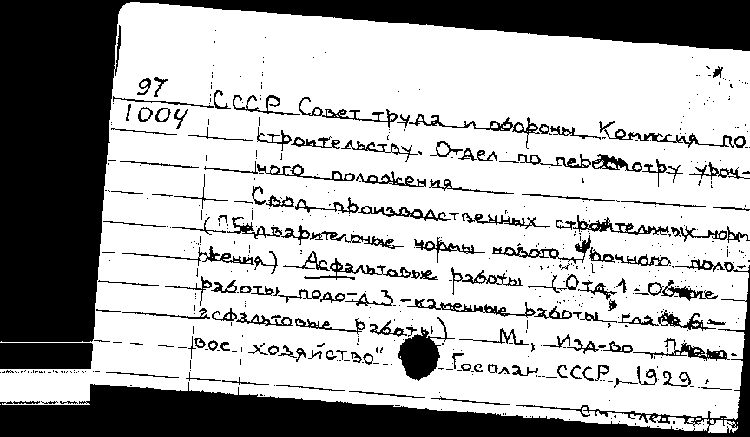 97
1004
СССР Совет труда и обороны. Комиссия по
строительству. Отдел по пересмотру уроч-
ного положения
Свод производственных строительных норм
(Предварительные нормы нового урочного поло-
жения) Асфальтовые работы (Отд. 1 - Общие
работы, подотд. 3 - каменные работы, глава 6 -
асфальтовые работы) М., Изд-во "Плано-
вое хозяйство" Госплан СССР, 1929.
См. след. карт.